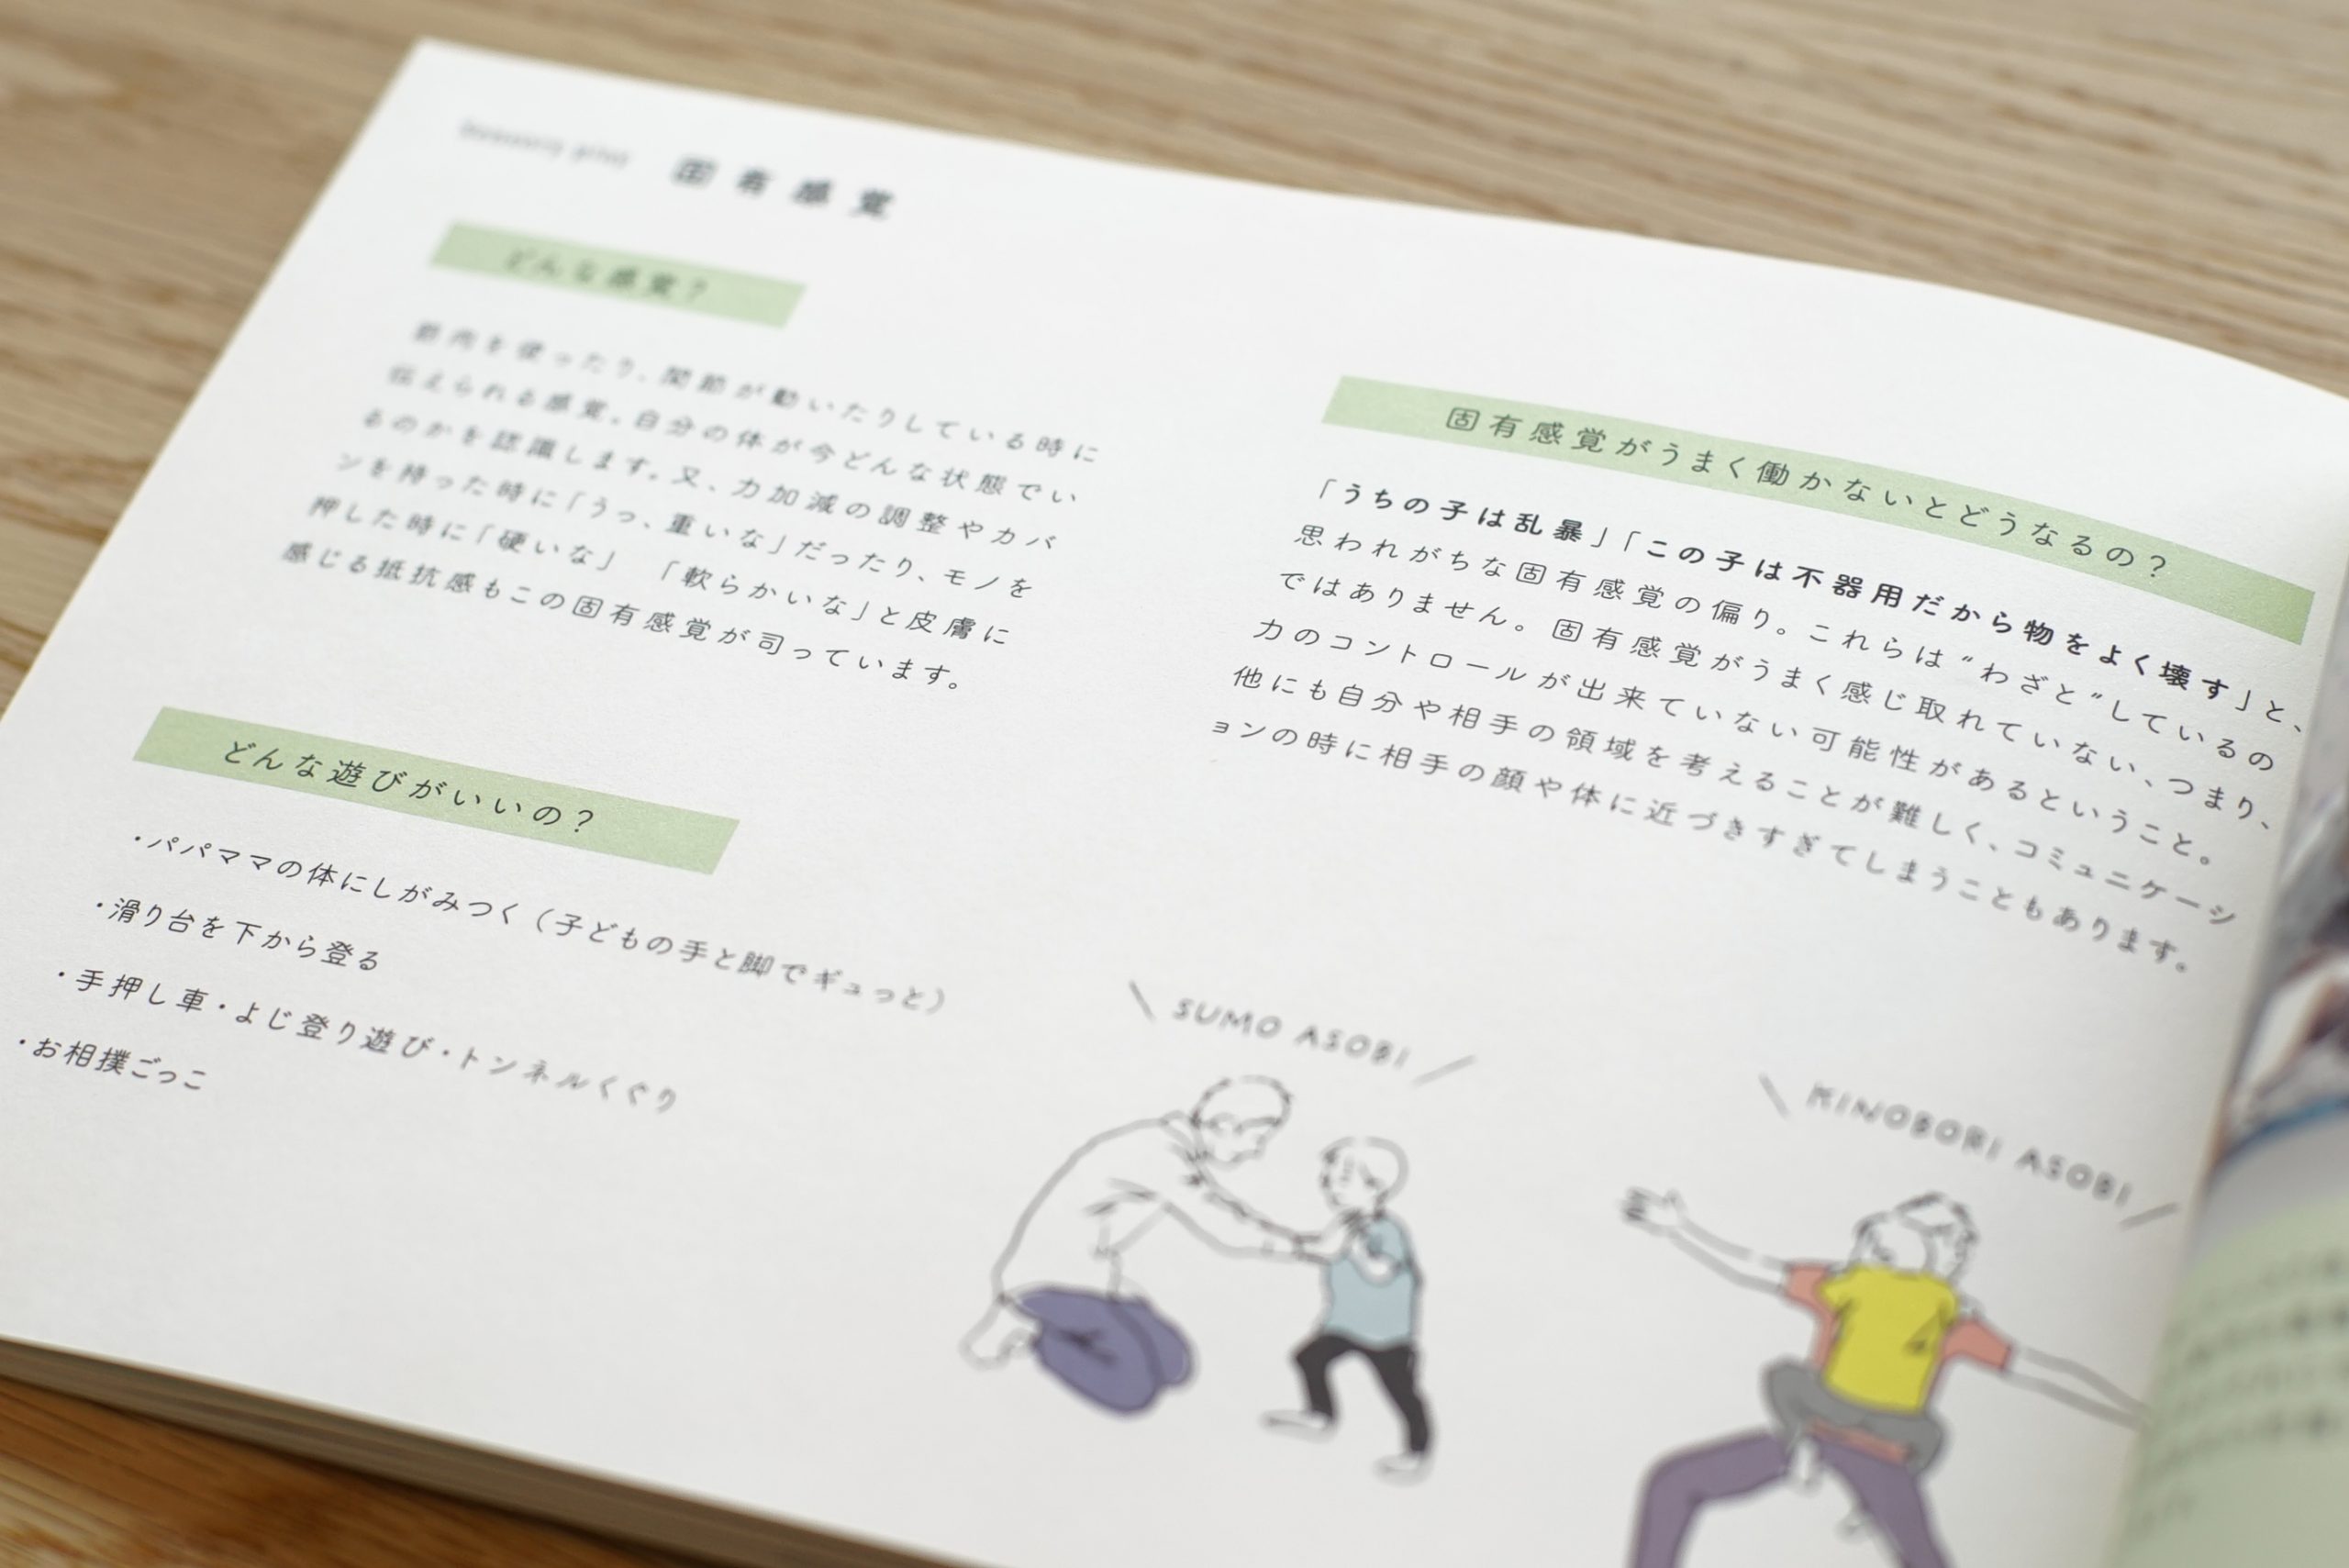 Sensory play 固有感覚
どんな感覚？
筋肉を使ったり、関節が動いたりしている時に
伝えられる感覚。自分の体が今どんな状態でい
るのかを認識します。又、力加減の調整やカバ
ンを持った時に「うっ、重いな」だったり、モノを
押した時に「硬いな」 「軟らかいな」と皮膚に
感じる抵抗感もこの固有感覚が司っています。
どんな遊びがいいの？
・パパママの体にしがみつく（子どもの手と脚でギュっと）
・滑り台を下から登る
・手押し車・よじ登り遊び・トンネルくぐり
・お相撲ごっこ
固有感覚がうまく働かないとどうなるの？
「うちの子は乱暴」「この子は不器用だから物をよく壊す」と、
思われがちな固有感覚の偏り。これらは“わざと“しているの
ではありません。固有感覚がうまく感じ取れていない、つまり、
力のコントロールが出来ていない可能性があるということ。
他にも自分や相手の領域を考えることが難しく、コミュニケーシ
ョンの時に相手の顔や体に近づきすぎてしまうこともあります。
\ SUMO ASOBI /
\ KINOBORI ASOBI /